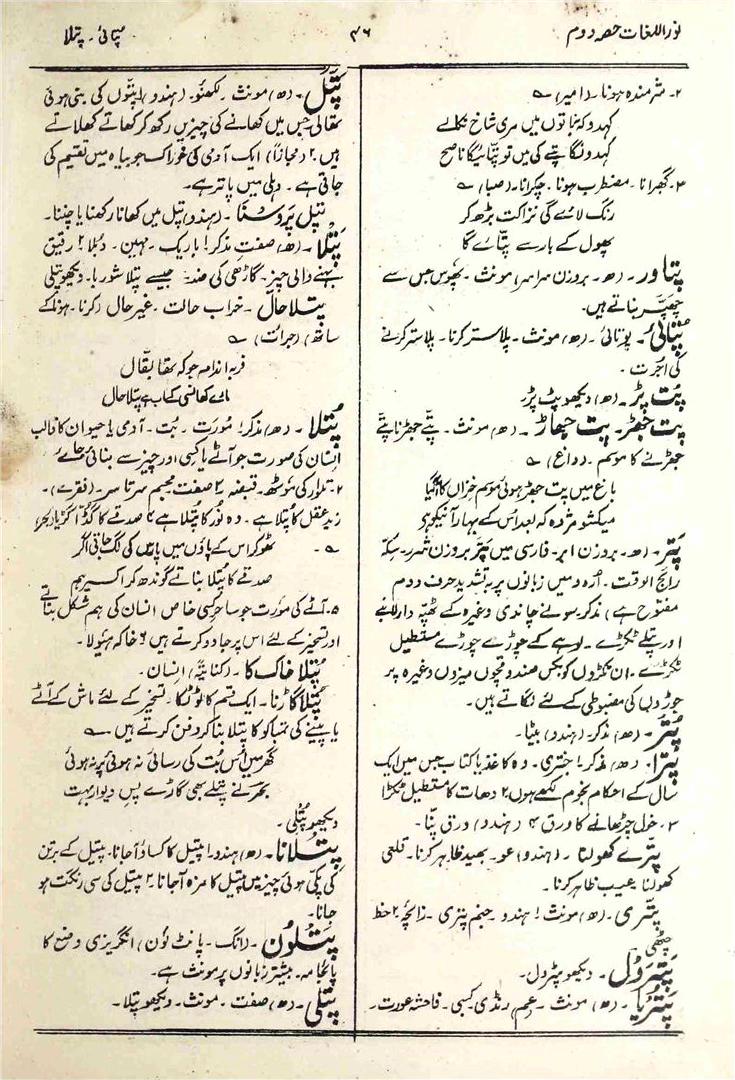 نور اللغات حصہ دوم
۴۶
پتائی۔ پتلا
۲۔ شرمندہ ہونا۔ (امیر) ؎
کہدو کہ نباتوں میں مری شاخ نکالے
کہدو نگا پتے کی میں تو پتائیگا ناصح
۳۔ گھبرانا۔ مضطرب ہونا۔ چکرانا۔ (صبا) ؎
رنگ لائے گی نزاکت بڑھ کر
پھول کے بار سے پتائے گا
پتاور۔ (ھ۔ بروزن سراسر) مونث۔ پھوس جس سے
چھپر بناتے ہیں۔
پُتائی۔ پوتائی۔ (ھ) مونث۔ پلاستر کرنا۔ پلاستر کرنے
کی اجرت۔
پَت پڑ۔ (ھ) دیکھو پٹ پڑ۔
پت جھڑ۔ پت جھاڑ۔ (ھ) مونث۔ پتے جھڑنا پتے
جھڑنے کا موسم۔ (وداغ) ؎
باغ میں پت جھڑ ہوئی موسم خزاں کا آگیا
میکشو مژدہ کہ بعد اس کے بہار آنیکو ہی
پَتَر۔ (ھ۔ بروزن ابر۔ فارسی میں پتر بروزن شرر۔ سکہ
رائج الوقت۔ اردو میں زبانوں پر بہ تشدید حرف دوم
مفتوح ہے) مذکر۔ سونے چاندی وغیرہ کے ٹھپہ دار لانبے
اور پتلے ٹکڑے۔ لوہے کے چوڑے چوڑے مستطیل
ٹکڑے۔ ان ٹکڑوں کو بکس صندوقچوں میزوں وغیرہ پر
جوڑوں کی مضبوطی کے لئے لگاتے ہیں۔
پُتر۔ (ھ) مذکر۔ (ہندو) بیٹا۔
پترا۔ (ھ) مذکر ۱ جنتری۔ وہ کاغذ یا کتاب جس میں ایک
سال کے احکام نجوم لکھے ہوں ۲ دھات کا مستطیل ٹکڑا
۳۔ خول چڑھانے کا ورق ۴ (ہندو) ورق پنّا۔
پترے کھولنا۔ (ہندو) عو۔ بھید ظاہر کرنا۔ قلعی
کھولنا۔ عیب ظاہر کرنا۔
پتری۔ (ھ) مونث ۱ ہندو۔ جنم پتری۔ زائچہ ۲ خط
چٹھی
پترول۔ دیکھو پٹرول۔
پتریا۔ (ھ) مونث۔ عم۔ رنڈی۔ کسبی۔ فاحشہ عورت۔
پتَّل۔ (ھ) مونث۔ لکھنؤ۔ (ہندو) پتّوں کی بنی ہوئی
تھالی جس میں کھانے کی چیزیں رکھ کر کھاتے کھلاتے
ہیں ۲ (مجازاً) ایک آدمی کی خوراک جو بیاہ میں تقسیم کی
جاتی ہے۔ دہلی میں پاتر ہے۔
پتل پروسنا۔ (ہندو) پتل میں کھانا رکھنا یا چننا۔
پتلا۔ (ھ) صفت مذکر ۱ باریک۔ مہین۔ دبلا ۲ رقیق
بہنے والی چیز۔ گاڑھی کی ضد۔ جیسے پتلا شوربا۔ دیکھو پتلی
پتلا حال۔ خراب حالت۔ غیر حال۔ (کرنا۔ ہونا کے
ساتھ) (جرات) ؎
فربہ اندامہ جو کہ تھا بقال
مارے کھانسی کے اب ہے پتلا حال
پُتلا۔ (ھ) مذکر ۱ مورت۔ بُت۔ آدمی یا حیوان کا قالب
انسان کی صورت جو آٹے یا کسی اور چیز سے بنائی جائے
۲۔ تلوار کی موٹھ۔ قبضہ ۳ صفت مجسم سرتا سر۔ (فقرے)۔
زید عقل کا پتلا ہے۔ وہ نور کا پتلا ہے ۴ صدقے کا گڈّا گڑیا (بحر)
؎ ٹھوکر اس کے پاؤں میں پارس کی لگ جاتی اگر
صدقے کا پتلا بناتے گوندھ کر اکسیر ہم
۵۔ آٹے کی مورت جو ساحر کسی خاص انسان کی ہم شکل بناتے
اور تسخیر کے لئے اس پر جادو کرتے ہیں ۶ خاکہ ہیولا۔
پُتلا خاک کا۔ (کنایتہً) انسان۔
پتلا گاڑنا۔ ایک قسم کا ٹوٹکا۔ تسخیر کے لئے ماش کے آٹے
یا پینے کی تمباکو کا پتلا بنا کر دفن کرتے ہیں۔ ؎
گھر میں اُس بُت کی رسائی نہ ہوئی پر نہ ہوئی
ہم نے پتلے بھی گاڑے پس دیوار بہت
دیکھو پُتلی۔
پیتلانا۔ (ھ) ہندو ۱ پیتل کا کساؤ آجانا۔ پیتل کے برتن
کی پکی ہوئی چیز میں پیتل کا مزہ آجانا۔ ۲ پیتل کی سی رنگت ہو
جانا۔
پتلون۔ (انگ۔ پانٹ لون) انگریزی وضع کا
پائجامہ۔ بیشتر زبانوں پر مونث ہے۔
پتلی۔ (ھ) صفت۔ مونث۔ دیکھو پتلا۔